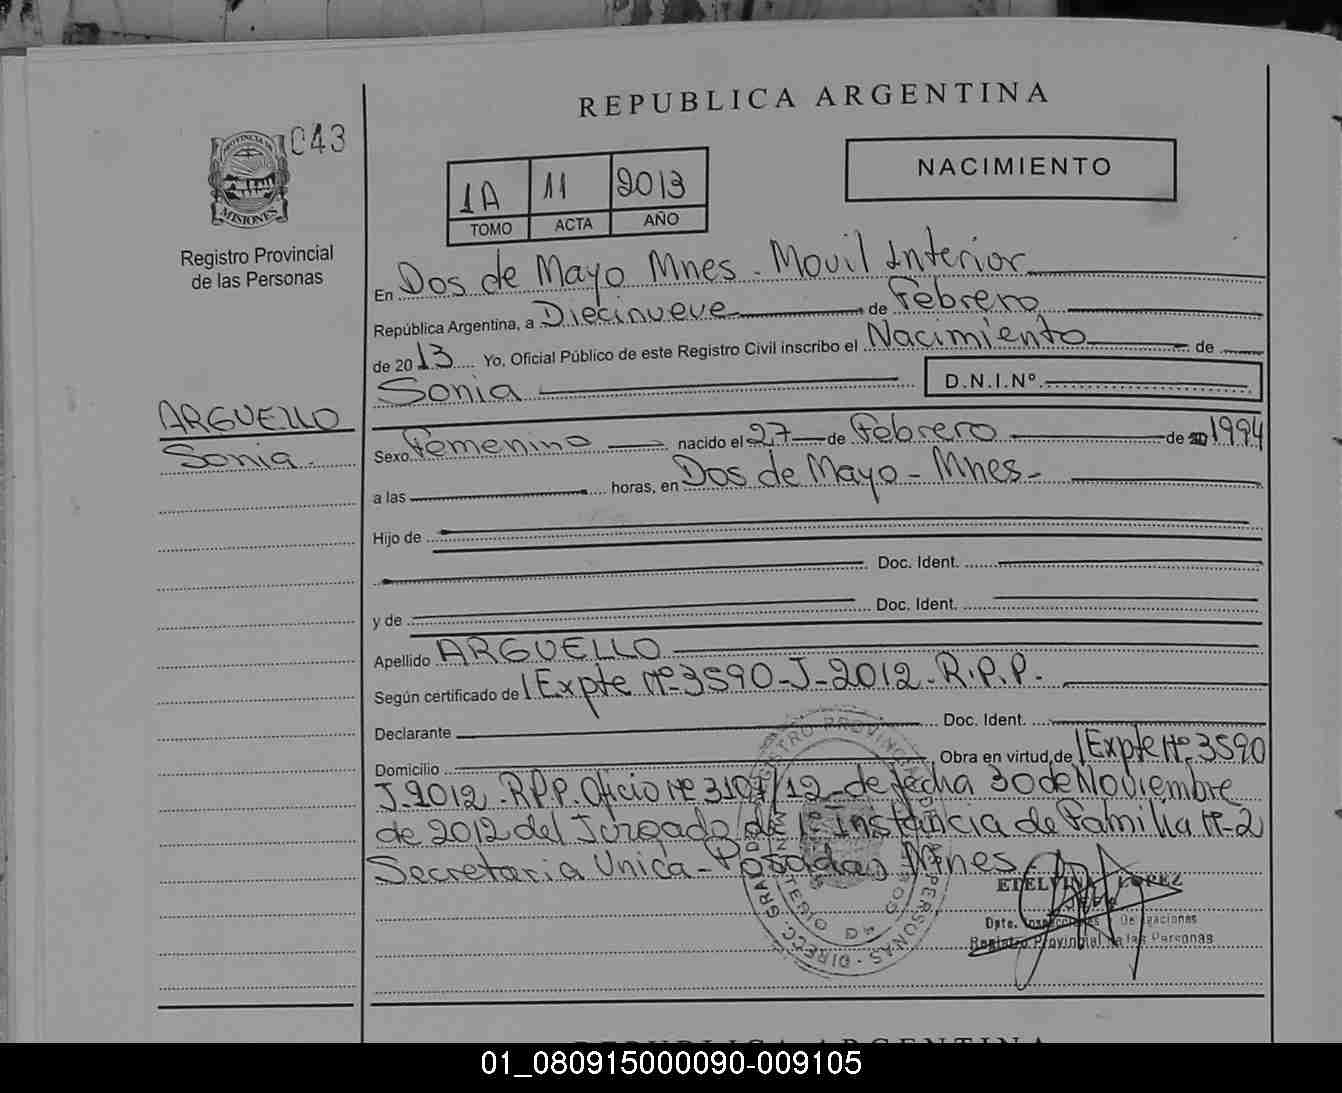 REPUBLICA ARGENTINA
043
PROVINCIA DE
MISIONES
Registro Provincial
de las Personas
1A 11 2013
TOMO ACTA AÑO
NACIMIENTO
En Dos de Mayo Mnes. Movil Interior
República Argentina, a Diecinueve de Febrero
de 2013 Yo, Oficial Público de este Registro Civil inscribo el Nacimiento de
Sonia D.N.I.Nº
ARGUELLO
Sonia.
Sexo Femenino nacido el 27 de Febrero de 1994
a las horas, en Dos de Mayo - Mnes-
Hijo de
Doc. Ident.
y de Doc. Ident.
Apellido ARGUELLO
Según certificado de Expte Nº 3590-J-2012-R.P.P.
Declarante Doc. Ident.
Domicilio Obra en virtud de Expte Nº 3590
J-2012-RPP. Oficio Nº 3107/12 de fecha 30 de Noviembre
de 2012 del Juzgado de 1º Instancia de Familia Nº 2
Secretaria Unica-Posadas Mnes
ETELVINA LOPEZ
JEFE
Dpto. Inspecciones Delegaciones
Registro Provincial de las Personas
REPUBLICA ARGENTINA
01_080915000090-009105